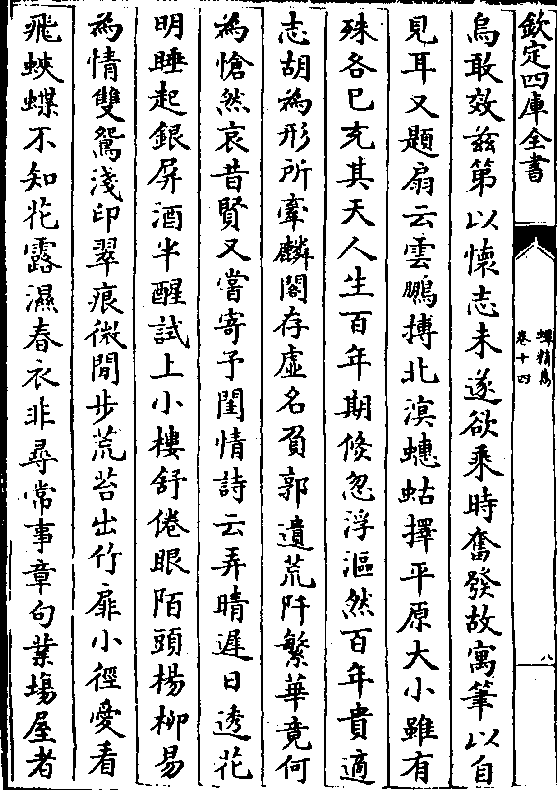 欽定四庫全書
蟫精雋
卷十四
八
烏敢效茲第以懷志未遂欲乘時奮發故寓筆以自
見耳又題扇云雲鵬搏北溟蟪蛄擇平原大小雖有
殊各已充其天人生百年期倐忽浮漚然百年貴適
志胡為形所牽麟閣存虛名負郭遺荒阡繁華竟何
為愴然哀昔賢又嘗寄予閨情詩云弄晴遲日透花
明睡起銀屏酒半醒試上小樓舒倦眼陌頭楊柳易
為情雙鴛淺印翠痕微閒步荒苔出竹扉小徑愛看
飛蛺蝶不知花露濕春衣非尋常事章句業塲屋者